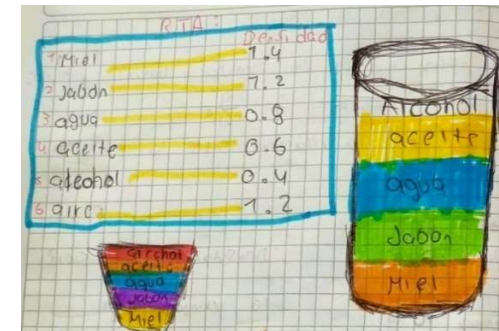 RTA:
Densidad
1 Miel 1.4
2 Jabón 1.2
3 agua 0.8
4 aceite 0.6
5 alcohol 0.4
6 aire 1.2
Alcohol
aceite
agua
Jabon
Miel
alcohol
aceite
agua
Jabon
Miel